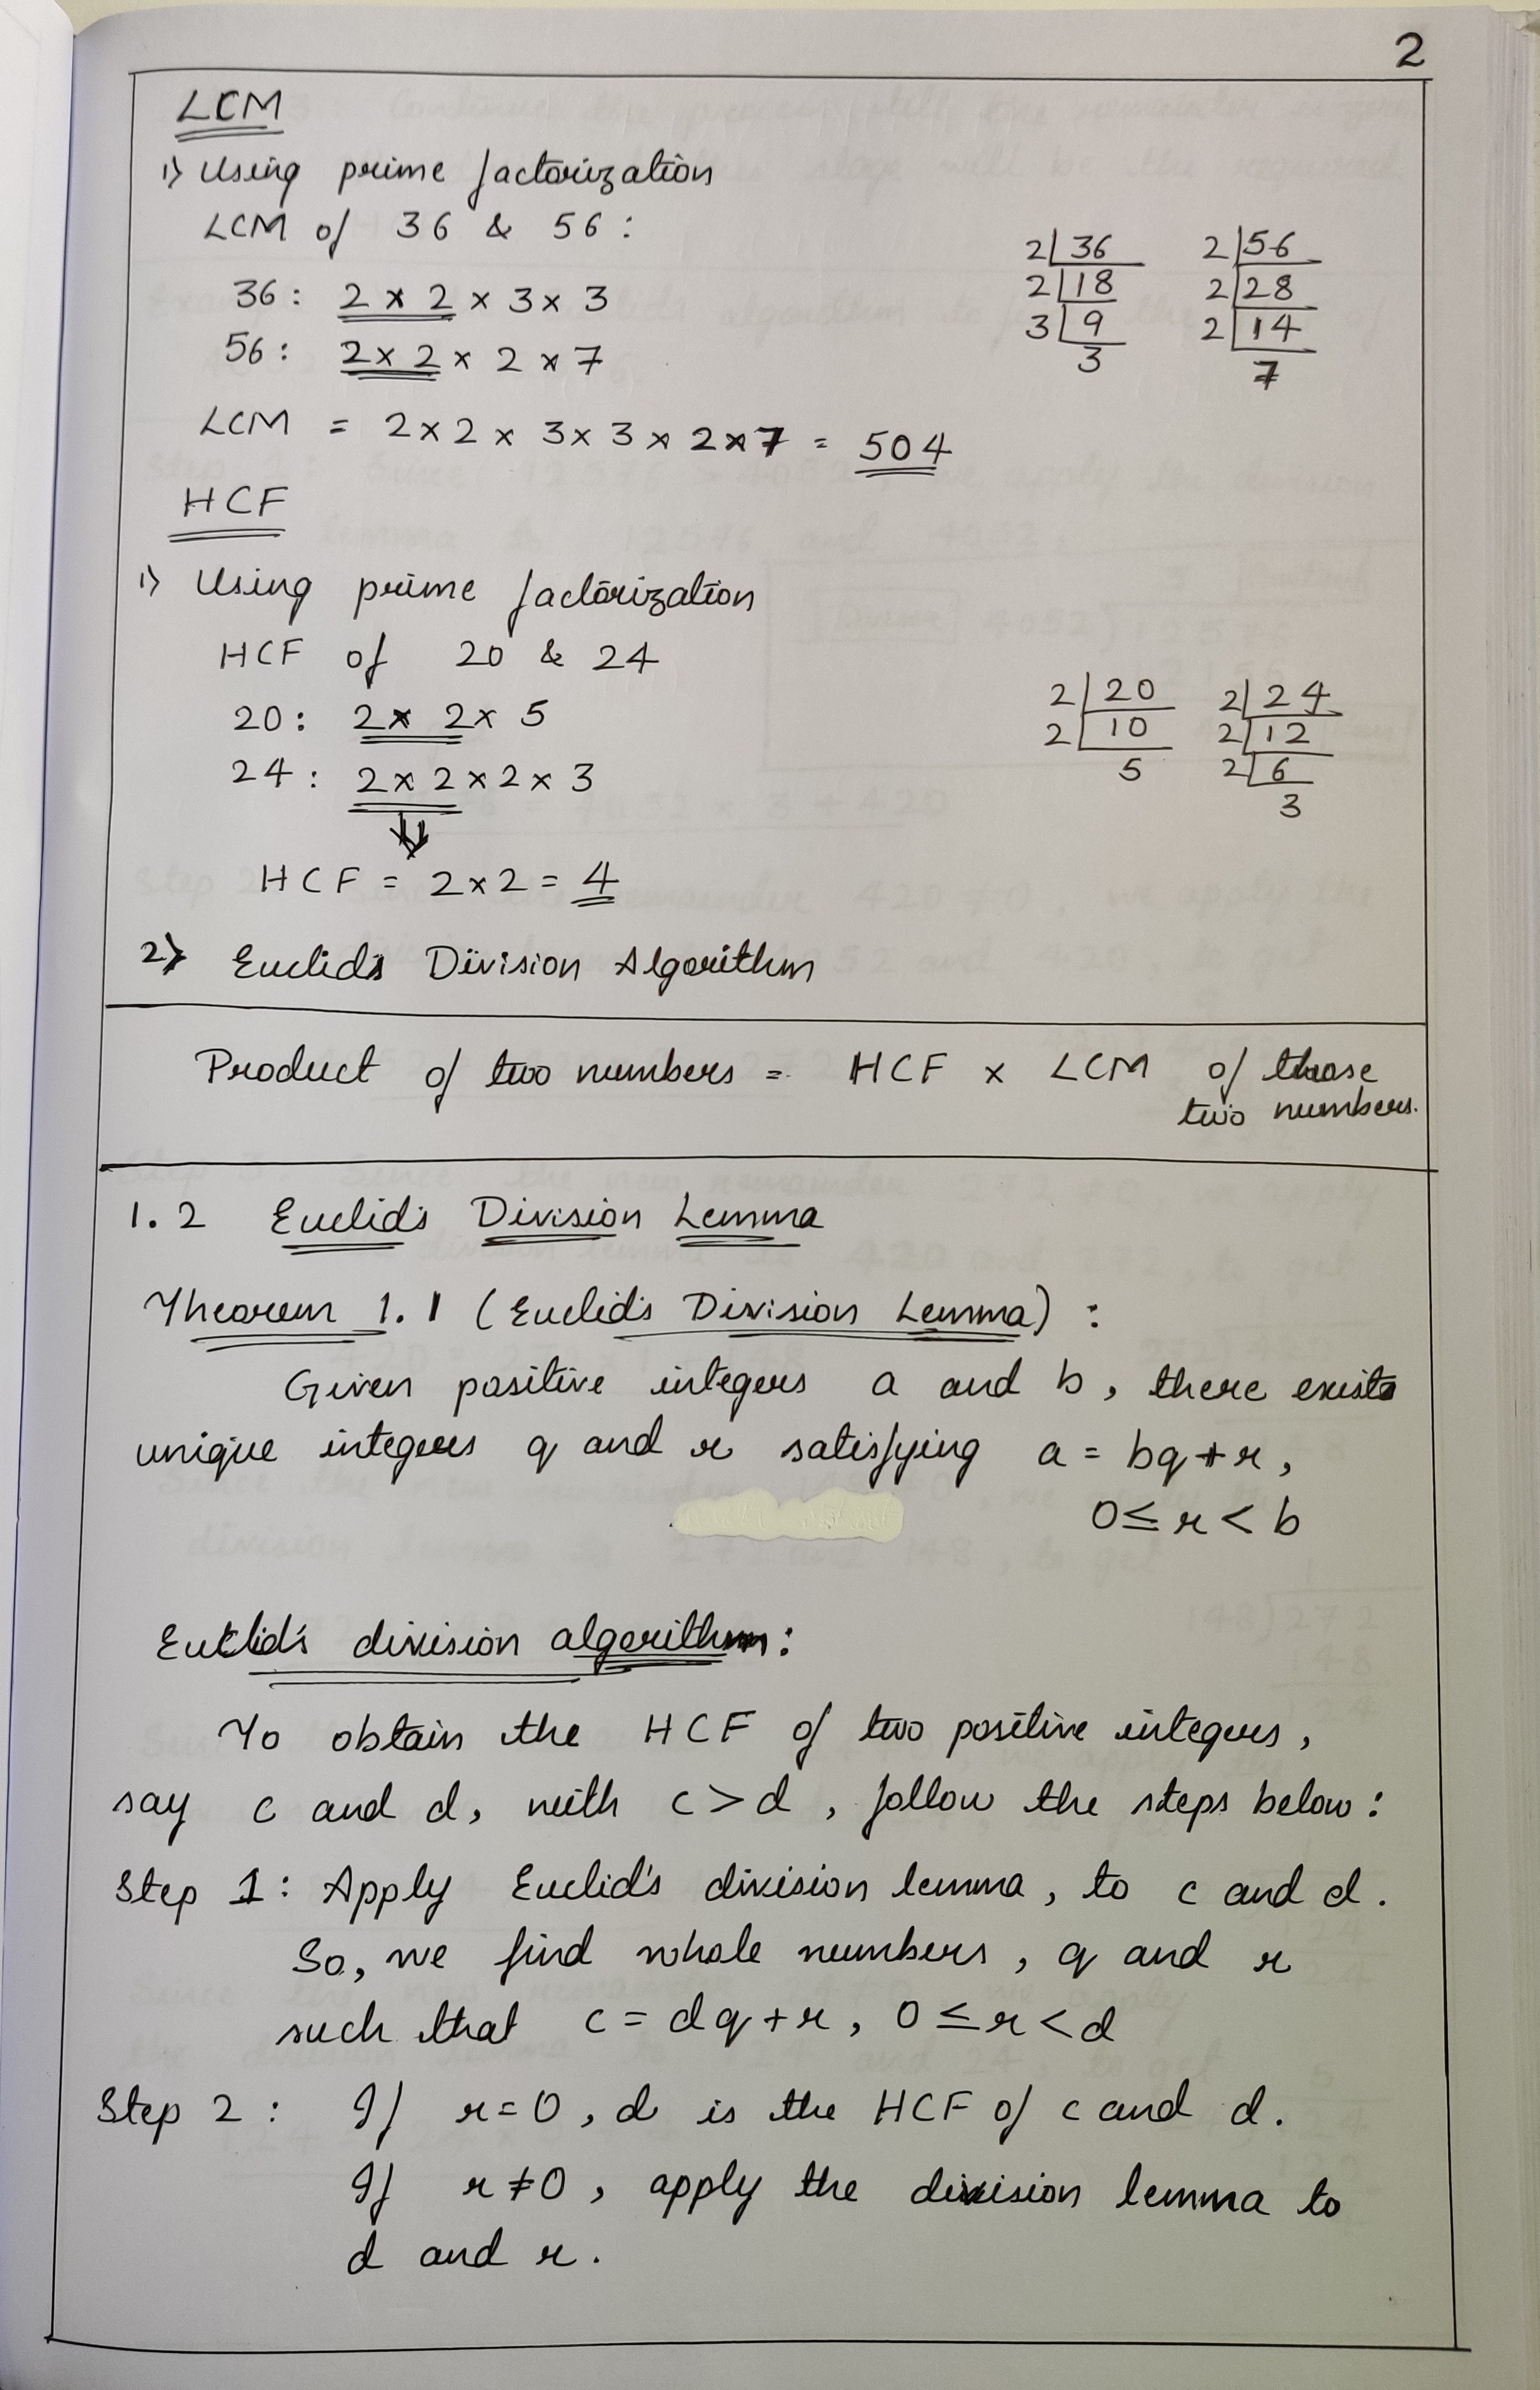 2
LCM
1) Using prime factorization
LCM of 36 & 56 :
36 : 2 × 2 × 3 × 3
56 : 2 × 2 × 2 × 7
2 36
2 18
3 9
3
2 56
2 28
2 14
7
LCM = 2 × 2 × 3 × 3 × 2 × 7 = 504
HCF
1) Using prime factorization
HCF of 20 & 24
20 : 2 × 2 × 5
24 : 2 × 2 × 2 × 3
2 20
2 10
5
2 24
2 12
2 6
3
HCF = 2 × 2 = 4
2) Euclid's Division Algorithm
Product of two numbers = HCF × LCM of those
two numbers.
1.2 Euclid's Division Lemma
Theorem 1.1 (Euclid's Division Lemma) :
Given positive integers a and b, there exists
unique integers q and r satisfying a = bq + r,
0 ≤ r < b
Euclid's division algorithm:
To obtain the HCF of two positive integers,
say c and d, with c > d, follow the steps below :
Step 1 : Apply Euclid's division lemma, to c and d.
So, we find whole numbers, q and r
such that c = dq + r, 0 ≤ r < d
Step 2 : If r = 0, d is the HCF of c and d.
If r ≠ 0, apply the division lemma to
d and r.